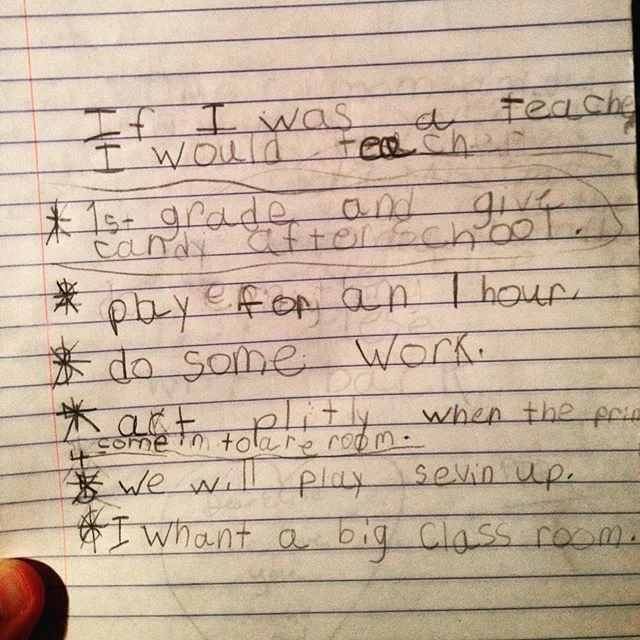 If I was a teache
I would teach
* 1st grade and give
candy after school.
* play for an 1 hour.
* do some work.
* act plitly when the prin
come in to are room.
* we will play sevin up.
* I whant a big class room.